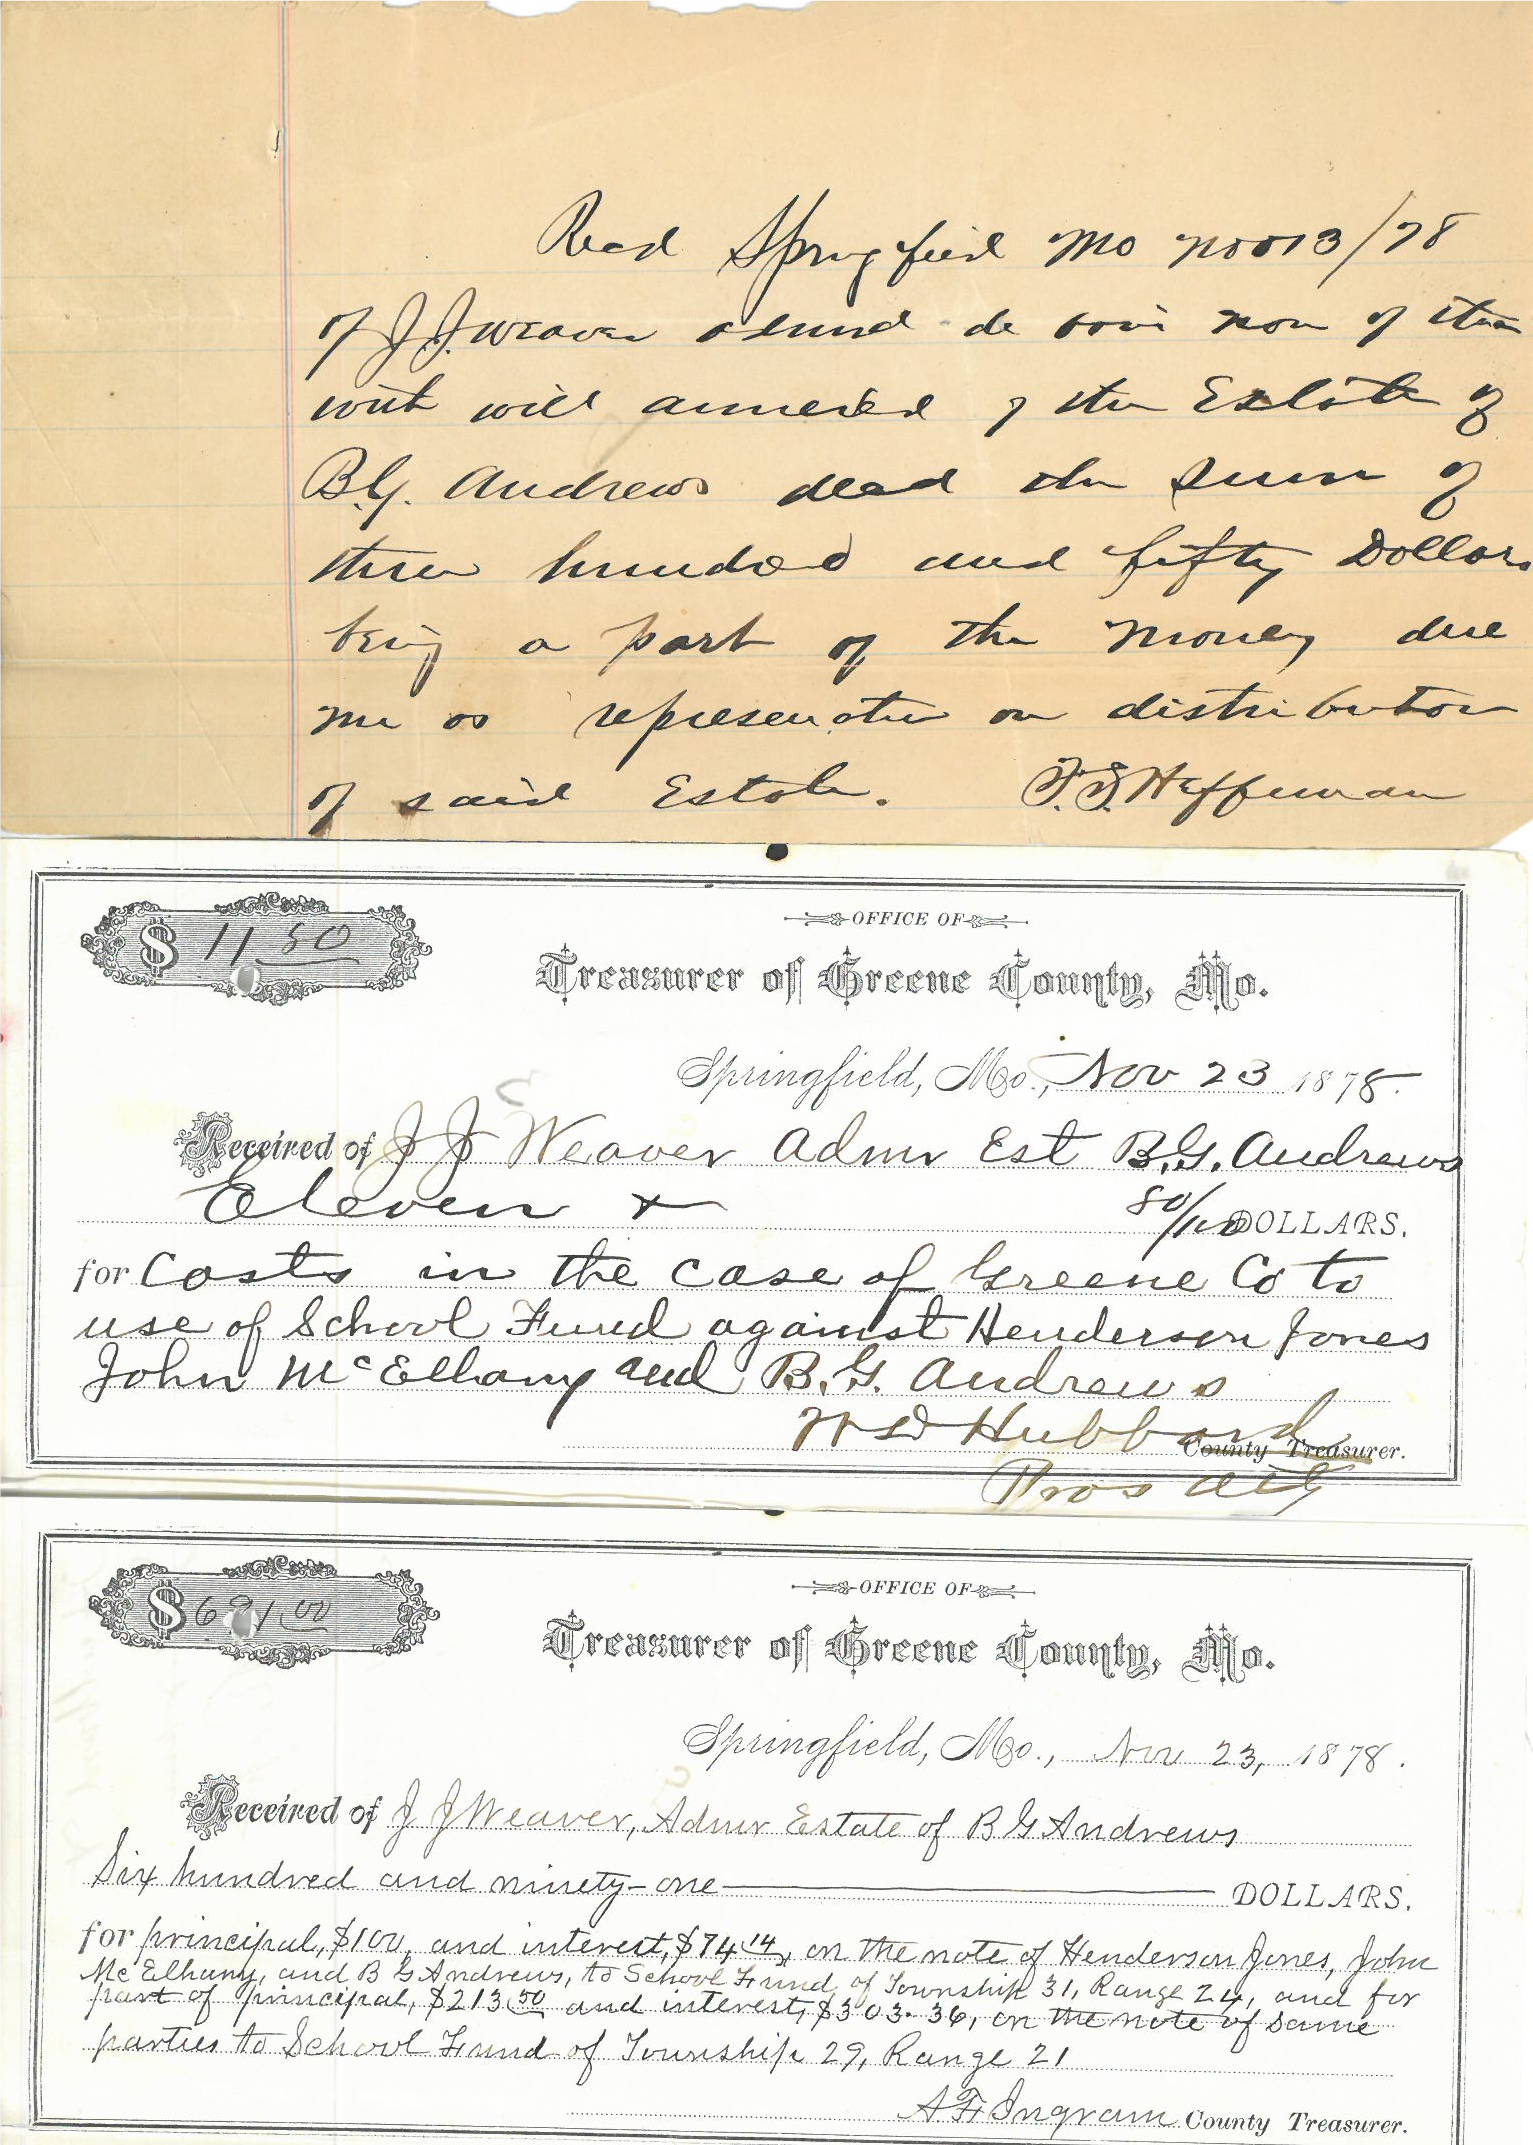 Recd Springfield Mo Nov 13/78
of J.J. Weaver admr de boni non of the
with will annexed of the Estate of
B.G. Andrews decd the sum of
three hundred and fifty Dollars
being a part of the money due
me as representative on distribution
of said Estate. F.S. Heffernan
$ 11.80
OFFICE OF
Treasurer of Greene County, Mo.
Springfield, Mo., Nov 23 1878.
Received of J J Weaver Admr Est B.G. Andrews
Eleven & 80/100 DOLLARS.
for Costs in the case of Greene Co to
use of School Fund against Henderson Jones
John McElhany and B.G. Andrews
W D Hubbard
County Treasurer.
Pros Atty
$ 691.00
OFFICE OF
Treasurer of Greene County, Mo.
Springfield, Mo., Nov 23, 1878.
Received of J J Weaver, Admr Estate of B G Andrews
Six hundred and ninety-one DOLLARS.
for principal, $100, and interest, $74.14, on the note of Henderson Jones, John
McElhany, and B G Andrews, to School Fund of Township 31, Range 24, and for
part of principal, $213.50 and interest, $303.36, on the note of same
parties to School Fund of Township 29, Range 21
A F Ingram County Treasurer.